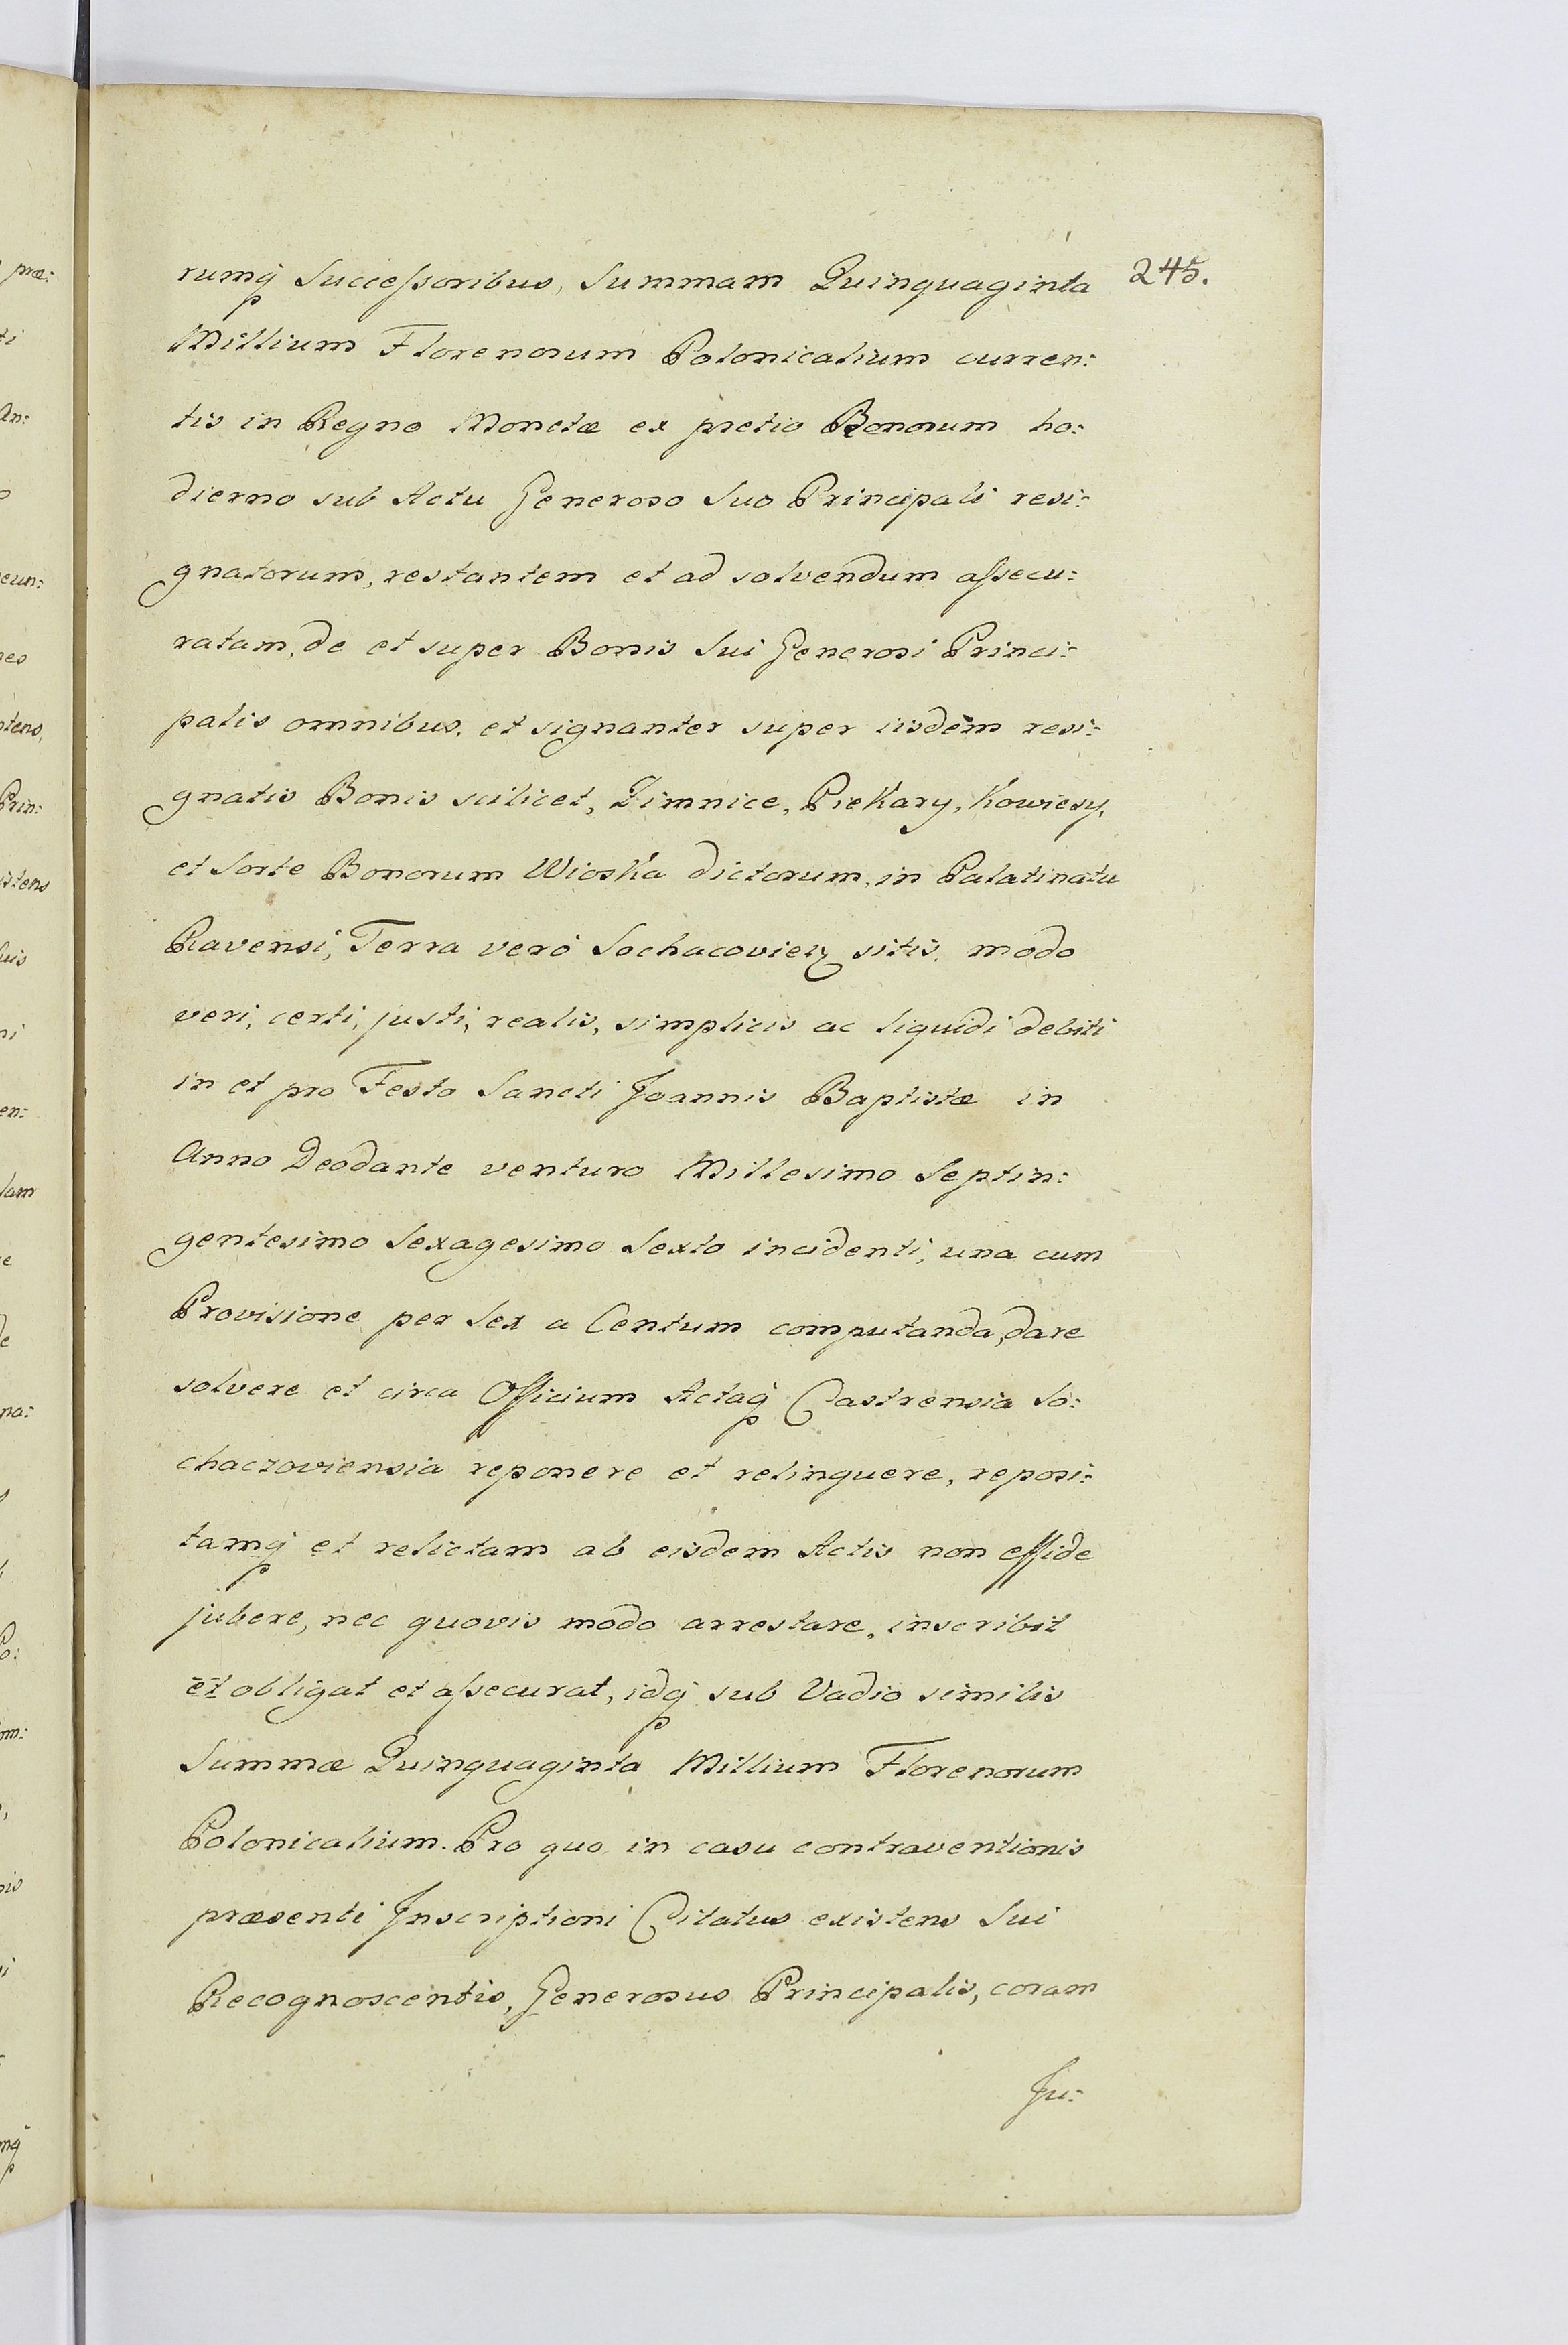 245.
rumq Successoribus, Summam Quinquaginta
Millium Florenorum Polonicalium curren:
tis in Regno Monetæ ex pretio Bonorum ho:
dierno sub Actu Generoso Suo Principali resi:
gnatorum, restantem et ad solvendum assecu:
ratam, de et super Bonis Sui Generosi Princi:
palis omnibus. et signanter super iisdem resi:
gnatis Bonis scilicet, Zimnice, Piekary, Kowiesy,
et Sorte Bonorum Wioska dictorum, in Palatinatu
Ravensi, Terra veró Sochacovien sitis, modo
veri, certi, justi, realis, simplicis ac liquidi debiti
in et pro Festo Sancti Joannis Baptistæ in
Anno Deodante venturo Millesimo Septin:
gentesimo Sexagesimo Sexto incidenti, una cum
Provisione per Sex a Centum computanda, dare
solvere et circa Officium Actaq Castrensia So:
chaczoviensia reponere et relinquere, reposi:
tamq et relictam ab eisdem Actis non effide
jubere, nec quovis modo arrestare, inscribit
et obligat et assecurat, idq sub Vadio similis
Summæ Quinquaginta Millium Florenorum
Polonicalium. Pro quo in casu contraventionis
præsenti Inscriptioni Citatus existens Sui
Recognoscentis, Generosus Principalis, coram
Ju:
præ:
ti
An:
cun:
nes
Prin:
istens
en:
na:
om: